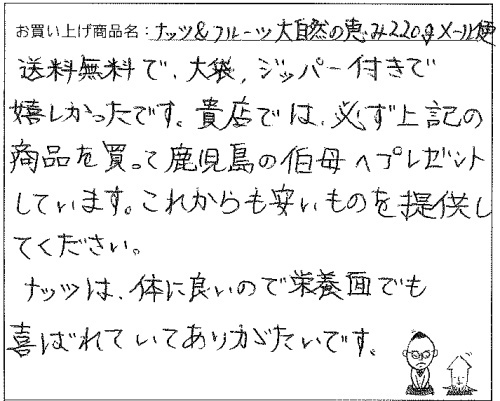 お買い上げ商品名：ナッツ&フルーツ大自然の恵み220gメール便
送料無料で、大袋，ジッパー付きで
嬉しかったです。貴店では、必ず上記の
商品を買って鹿児島の伯母へプレゼント
しています。これからも安いものを提供し
てください。
ナッツは、体に良いので栄養面でも
喜ばれていてありがたいです。